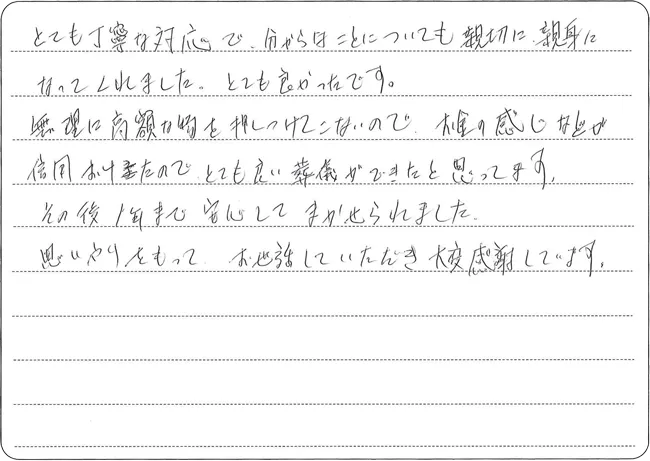 とても丁寧な対応で、分からはことについても親切に、親身に
なってくれました。とても良かったです。
無理に高額な物を押しつけてこないので、
の感じなどが
とても良い葬儀ができたと思ってます。
その後1年まで安心してまかせられました。
思いやりをもって、お世話していただき大変感謝しています。